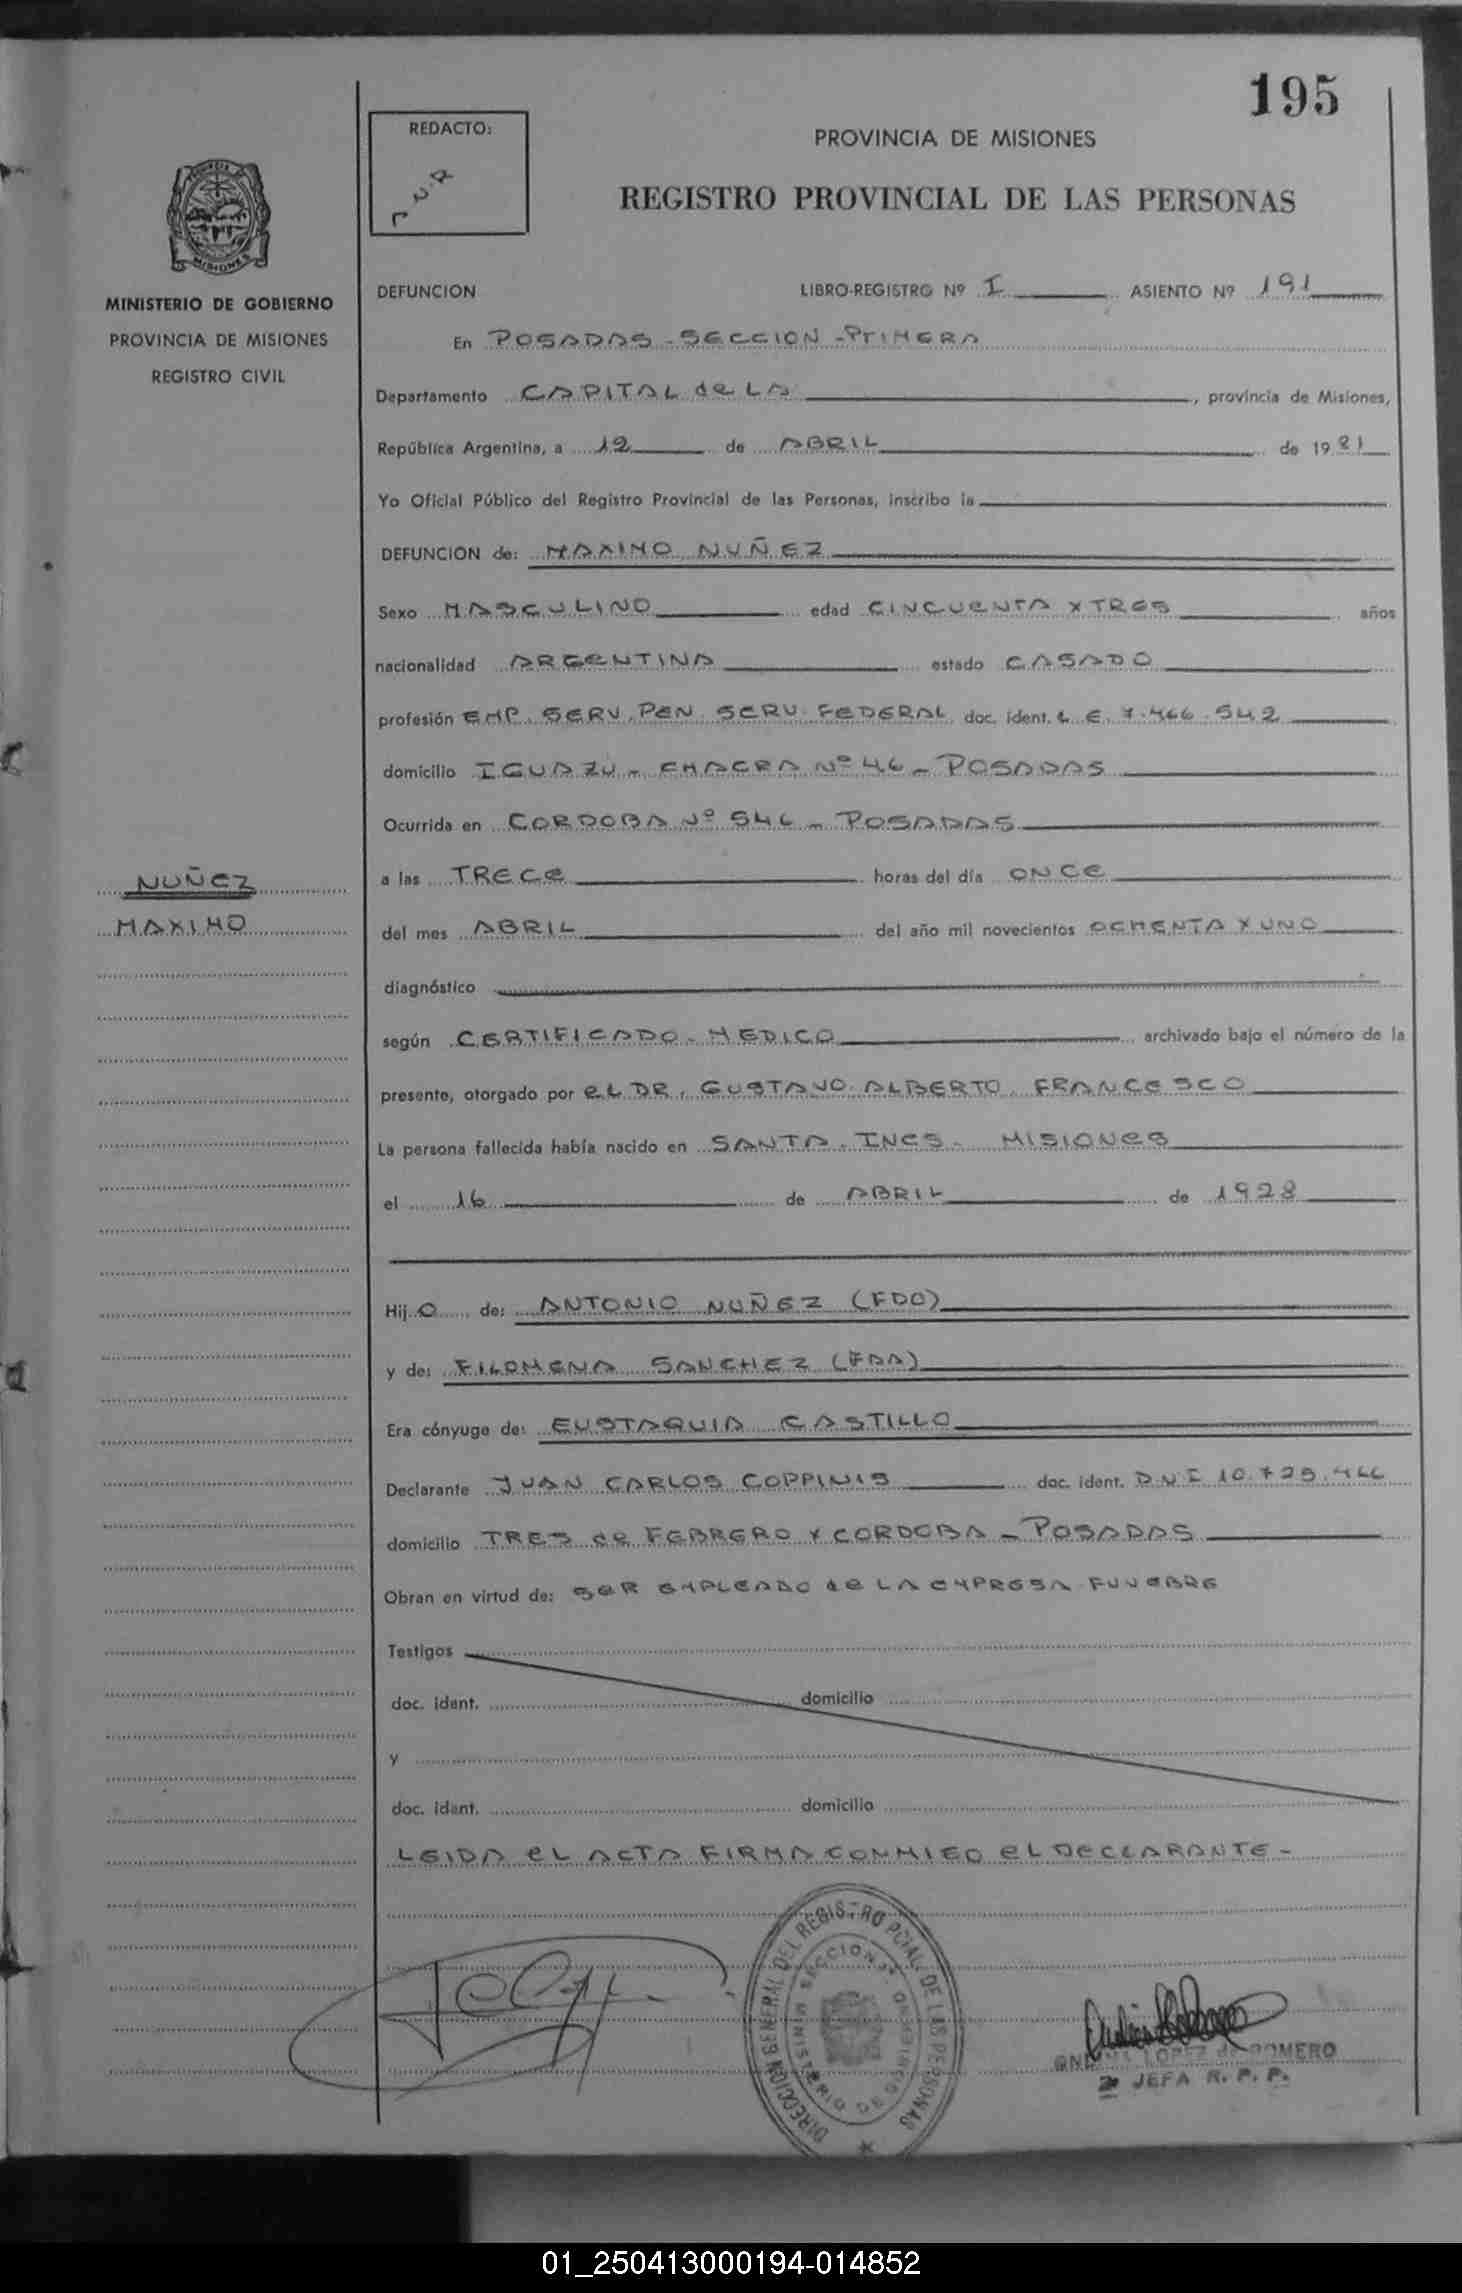 195
REDACTO:
PROVINCIA DE MISIONES
REGISTRO PROVINCIAL DE LAS PERSONAS
MISIONES
MINISTERIO DE GOBIERNO
PROVINCIA DE MISIONES
REGISTRO CIVIL
DEFUNCION LIBRO-REGISTRO Nº I ASIENTO Nº 191
En POSADAS - SECCION - PriMERA
Departamento CAPITAL de LA, provincia de Misiones,
República Argentina, a 12 de ABRIL de 1981
Yo Oficial Público del Registro Provincial de las Personas, inscribo la
DEFUNCION de: MAXIMO NUÑEZ
Sexo MASCULINO edad CINCUENTA Y TRES años
nacionalidad ARGENTINA estado CASADO
profesión EMP. SERV. PEN. SERV. FEDERAL doc. ident. L E 7.466.542
domicilio IGUAZU - CHACRA Nº 46 - POSADAS
Ocurrida en CORDOBA Nº 546 - POSADAS
NUÑEZ
MAXIMO
a las TRECE horas del día ONCE
del mes ABRIL del año mil novecientos OCHENTA Y UNO
diagnóstico
según CERTIFICADO - MEDICO archivado bajo el número de la
presente, otorgado por eL DR. GUSTAVO ALBERTO FRANCESCO
La persona fallecida había nacido en SANTA - INES - MISIONES
el 16 de ABRIL de 1928
Hij O de: ANTONIO NUÑEZ (FDO)
y de: FILOMENA SANCHEZ (FDA)
Era cónyuge de: EUSTAQUIA CASTILLO
Declarante JUAN CARLOS COPPINIS doc. ident. D N I 10.725.466
domicilio TRES de FEBRERO Y CORDOBA - POSADAS
Obran en virtud de: SER EMPLEADO de LA EMPRESA FUNEBRE
Testigos
doc. ident. domicilio
y
doc. ident. domicilio
LEIDA eL ACTA FIRMA CONMIGO eL DECLARANTE -
DIRECCION GENERAL DEL REGISTRO PCIAL. DE LAS PERSONAS
SECCION 1ª
MINISTERIO DE GOBIERNO
LOPEZ de ROMERO
JEFA R. P. P.
01_250413000194-014852